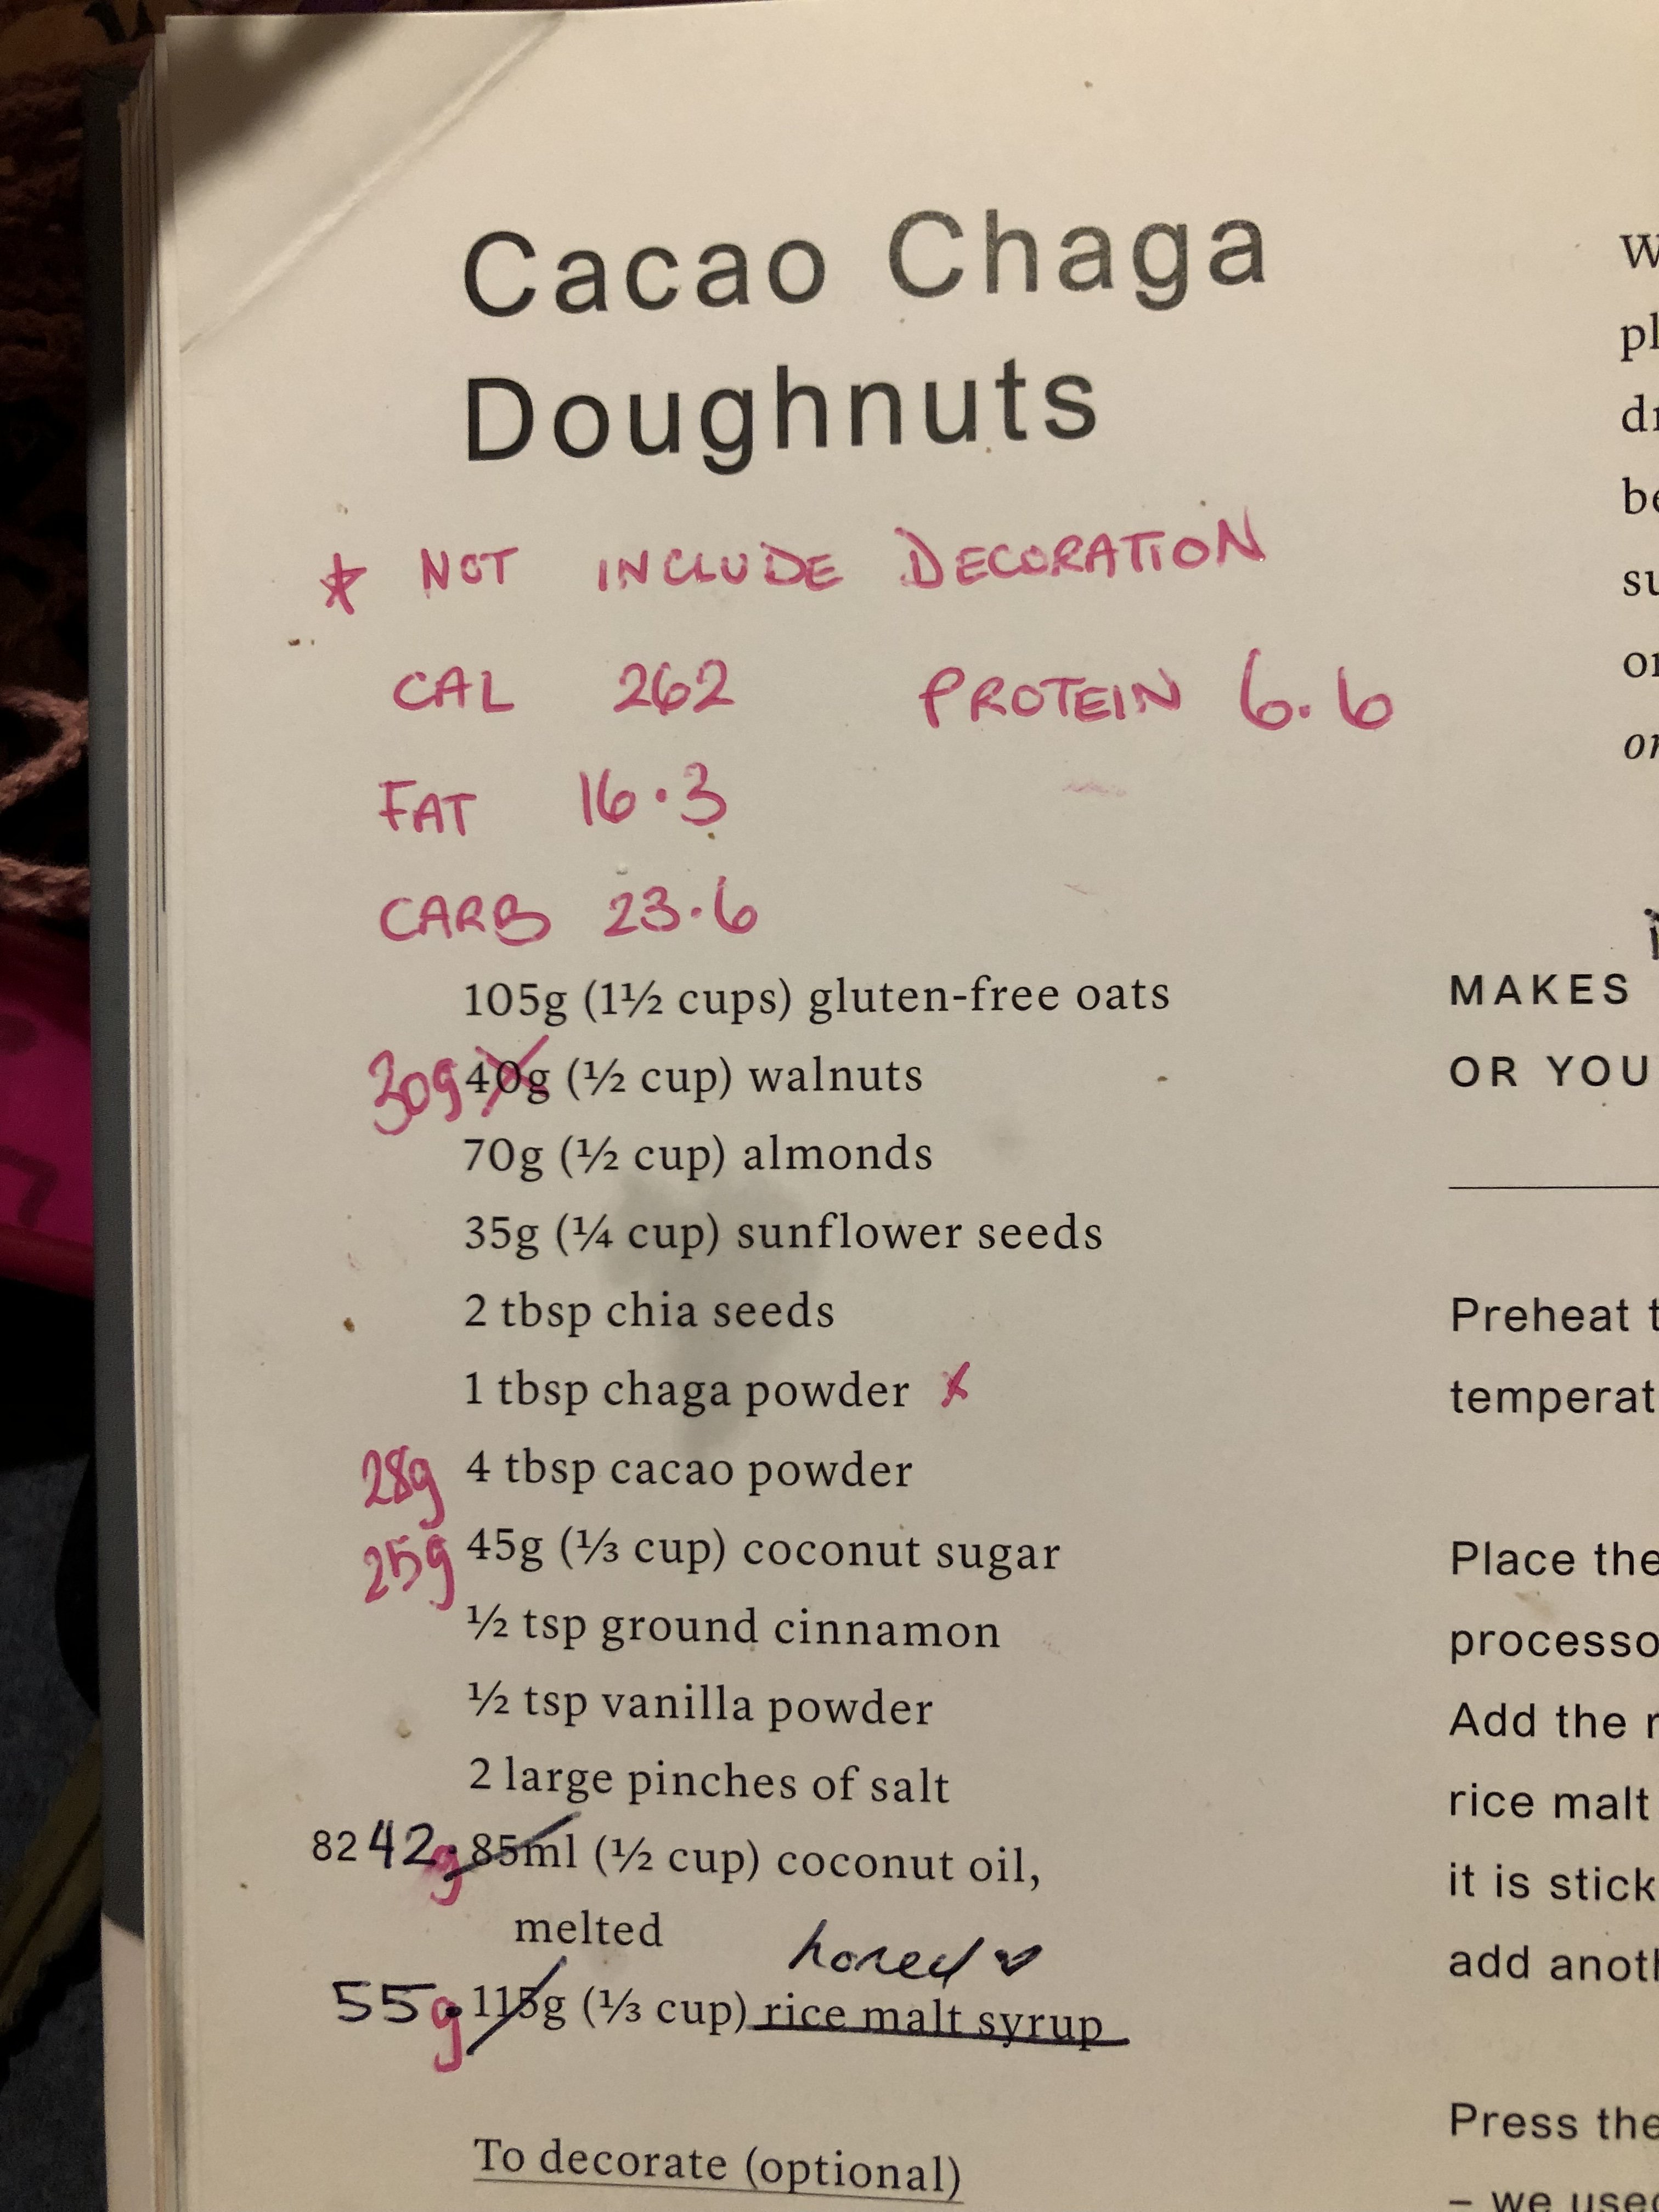 Cacao Chaga
Doughnuts
* NOT INCLUDE DECORATION
CAL 262 PROTEIN 6.6
FAT 16.3
CARB 23.6
105g (1½ cups) gluten-free oats
30g 40g (½ cup) walnuts
70g (½ cup) almonds
35g (¼ cup) sunflower seeds
2 tbsp chia seeds
1 tbsp chaga powder x
28g 4 tbsp cacao powder
25g 45g (⅓ cup) coconut sugar
½ tsp ground cinnamon
½ tsp vanilla powder
2 large pinches of salt
82 42g 85ml (½ cup) coconut oil,
melted
honey
55g 115g (⅓ cup) rice malt syrup
To decorate (optional)
MAKES
OR YOU
Preheat
temperat
Place the
processo
Add the
rice malt
it is stick
add anoth
Press the
– we used